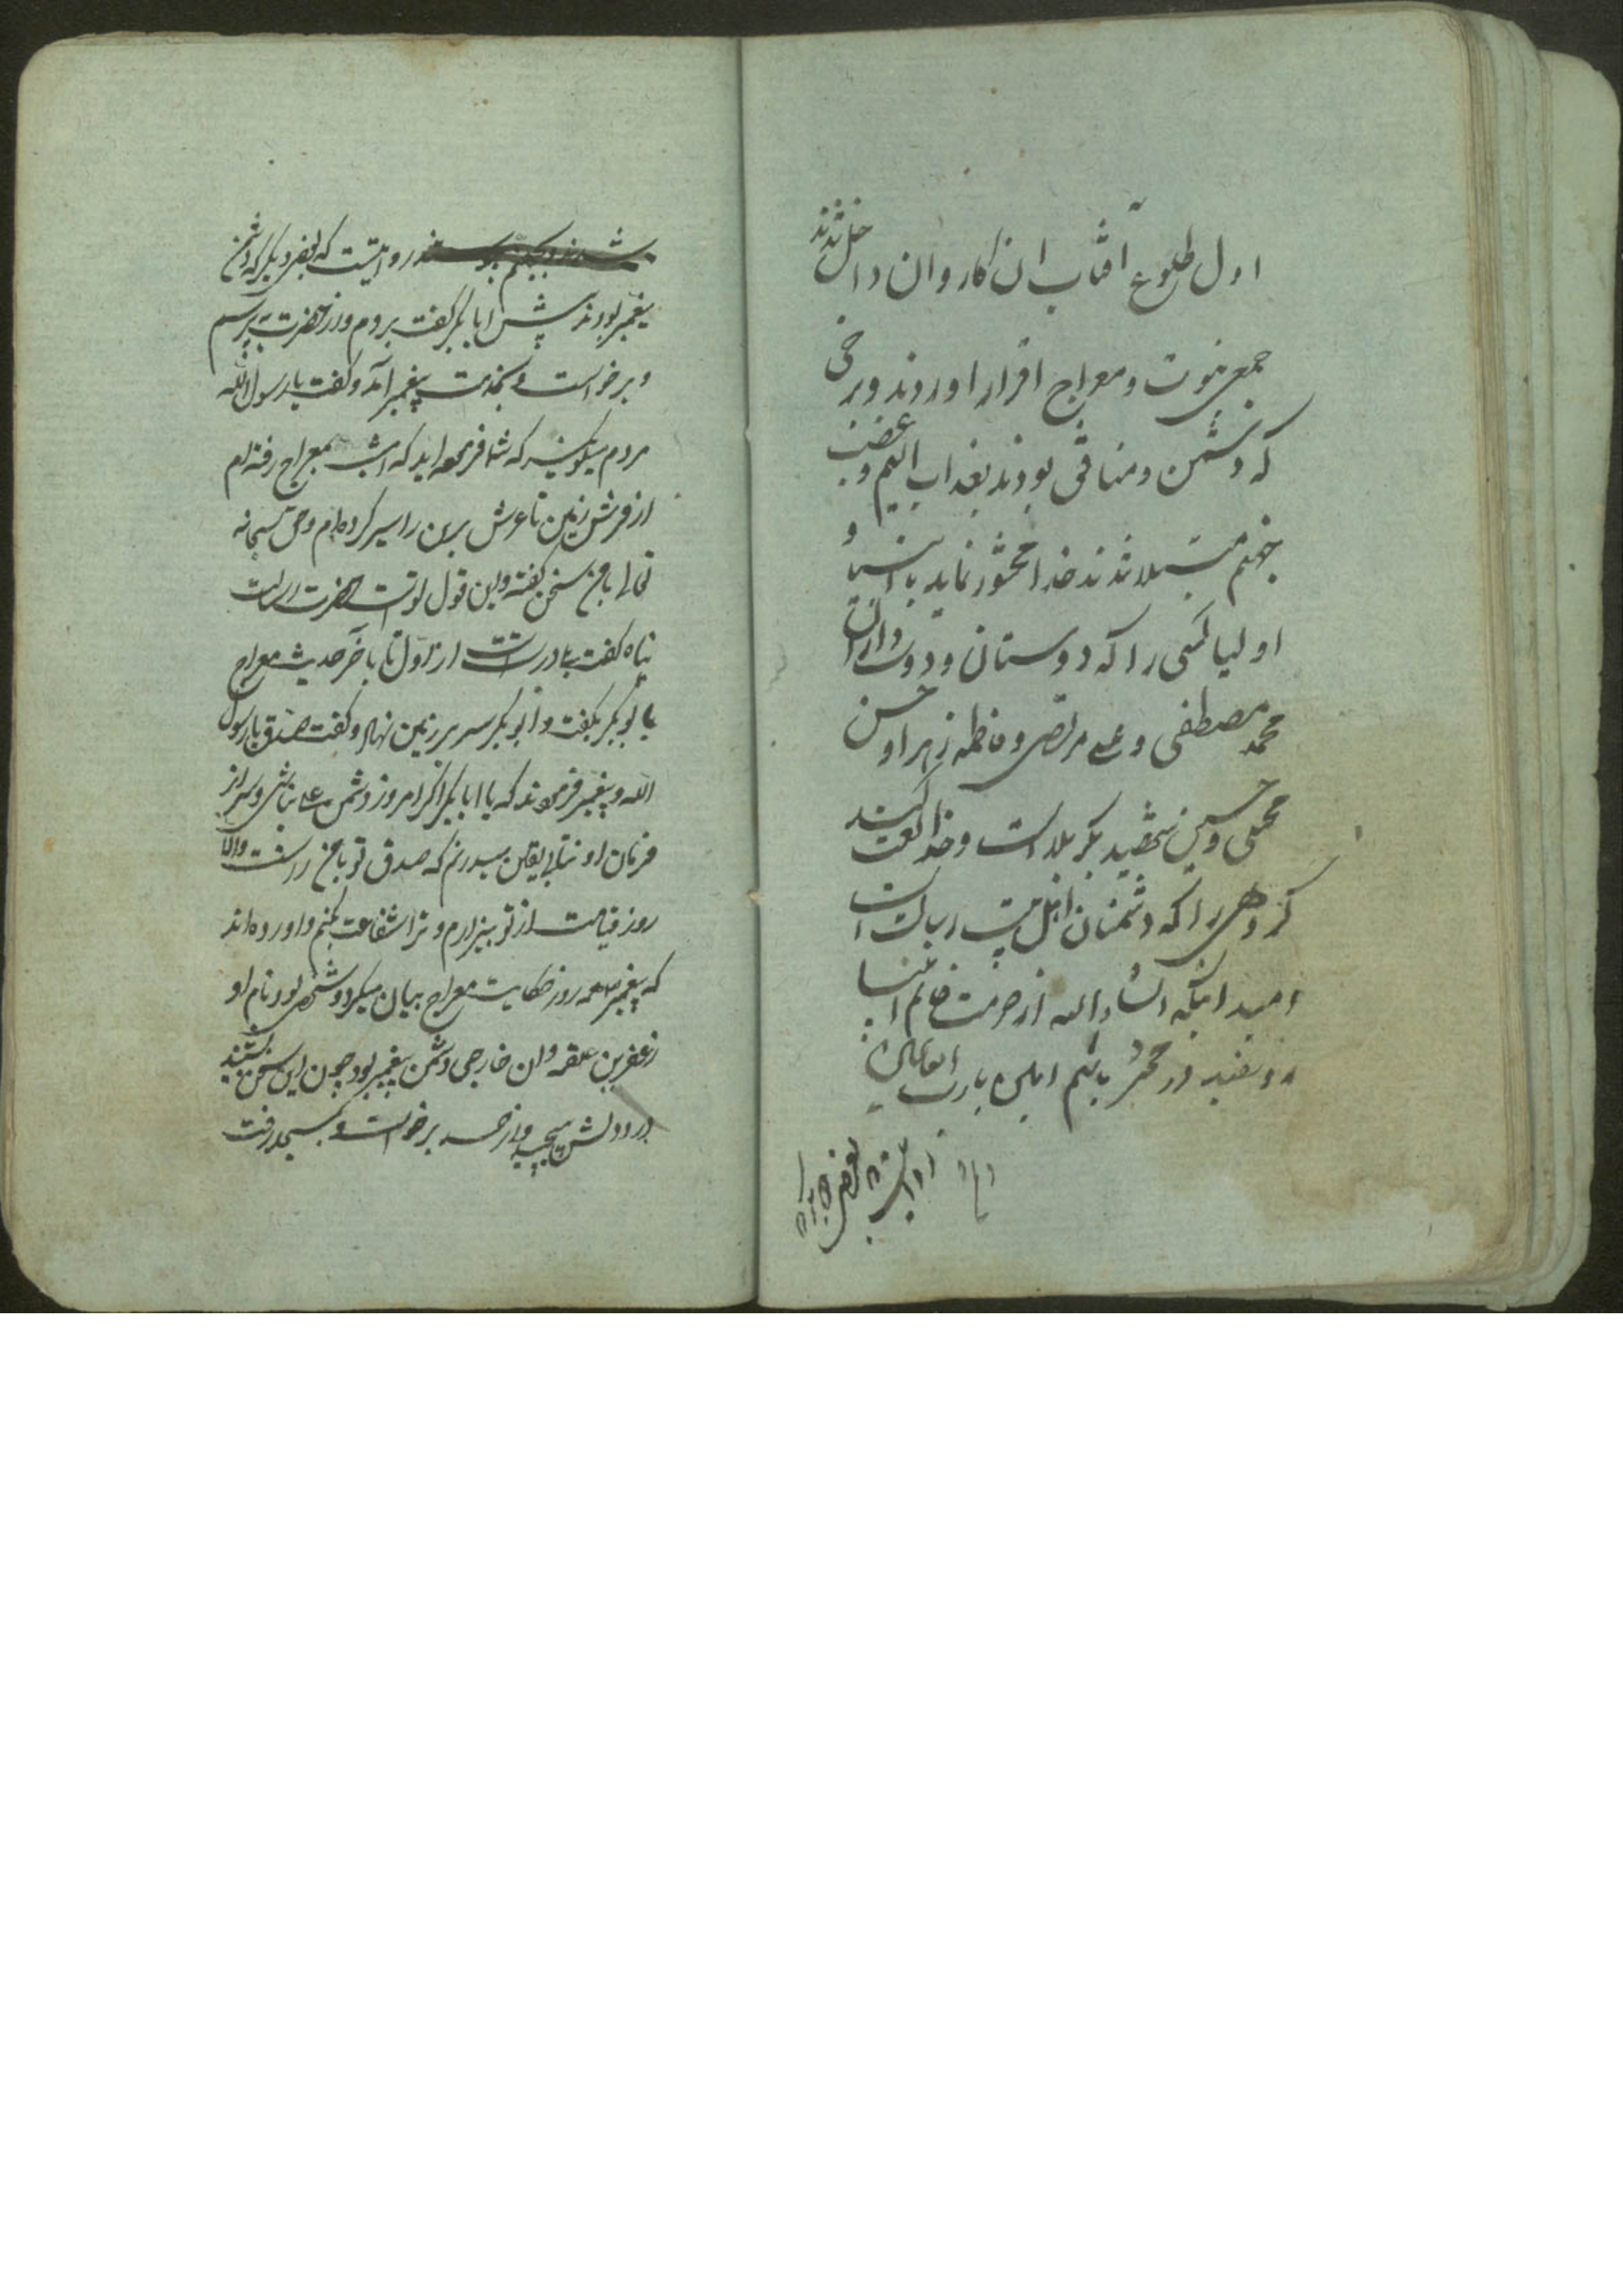 اول طلوع آفتاب ان کاروان داخل شدند
جمعی بنبوت و معراج اقرار اوردند و برخی
که دشمن و منافق بودند بعذاب الیم و غضب
جهنم مبتلا شدند خدا محشور نماید با انبیا و
اولیا کسی را که دوستان و دوست داران
محمد مصطفی و علی مرتضی و فاطمه زهرا و حسن
مجتبی و حسین شهید بکربلا است و خدا لعنت کند
کروهی را که دشمنان اهل بیت رسالت است
امید انکه انشاء الله از حرمت خاتم انبیا
روسفید در محشر باشیم امین یا رب العالمین
روایتست که بعضی دیکر که دشمن
پیغمبر بودند پیش ابا بکر کفت بروم و از حضرت بپرسم
و برخواست و بخدمت پیغمبر آمد و کفت یا رسول الله
مردم میکویند که شما فرموده اید که امشب بمعراج رفته ام
از فرش زمین تا عرش برین را سیر کرده ام و حق سبحانه
تعالی با من سخن کفته و این قول تو است حضرت رسالت
پناه کفت بلی درست است از اول تا باخر حدیث معراج
با ابو بکر بکفت و ابو بکر سر بر زمین نهاد و کفت صدق یا رسول
الله و پیغمبر فرمودند که یا ابا بکر اکر امروز دشمن علی نباشی و سر از
فرمان او نتابی یقین میدانم که صدق تو با من راست والا
روز قیامت از تو بیزارم و ترا شفاعت نکنم و اورده اند
که پیغمبر همه روز حکایت معراج بیان میکرد و شخصی بود نام او
زعفر بن علقمه و ان خارجی دشمن پیغمبر بود چون این سخن بشنید
در دلش پیچید و از حسد برخواست و بمسجد رفت